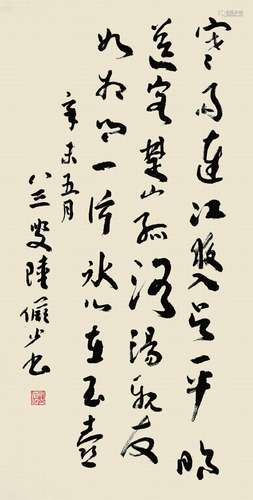 寒雨連江夜入吴平明
送客楚山孤洛陽親友
如相問一片冰心在玉壺
辛未五月
八三叟陸儼少书